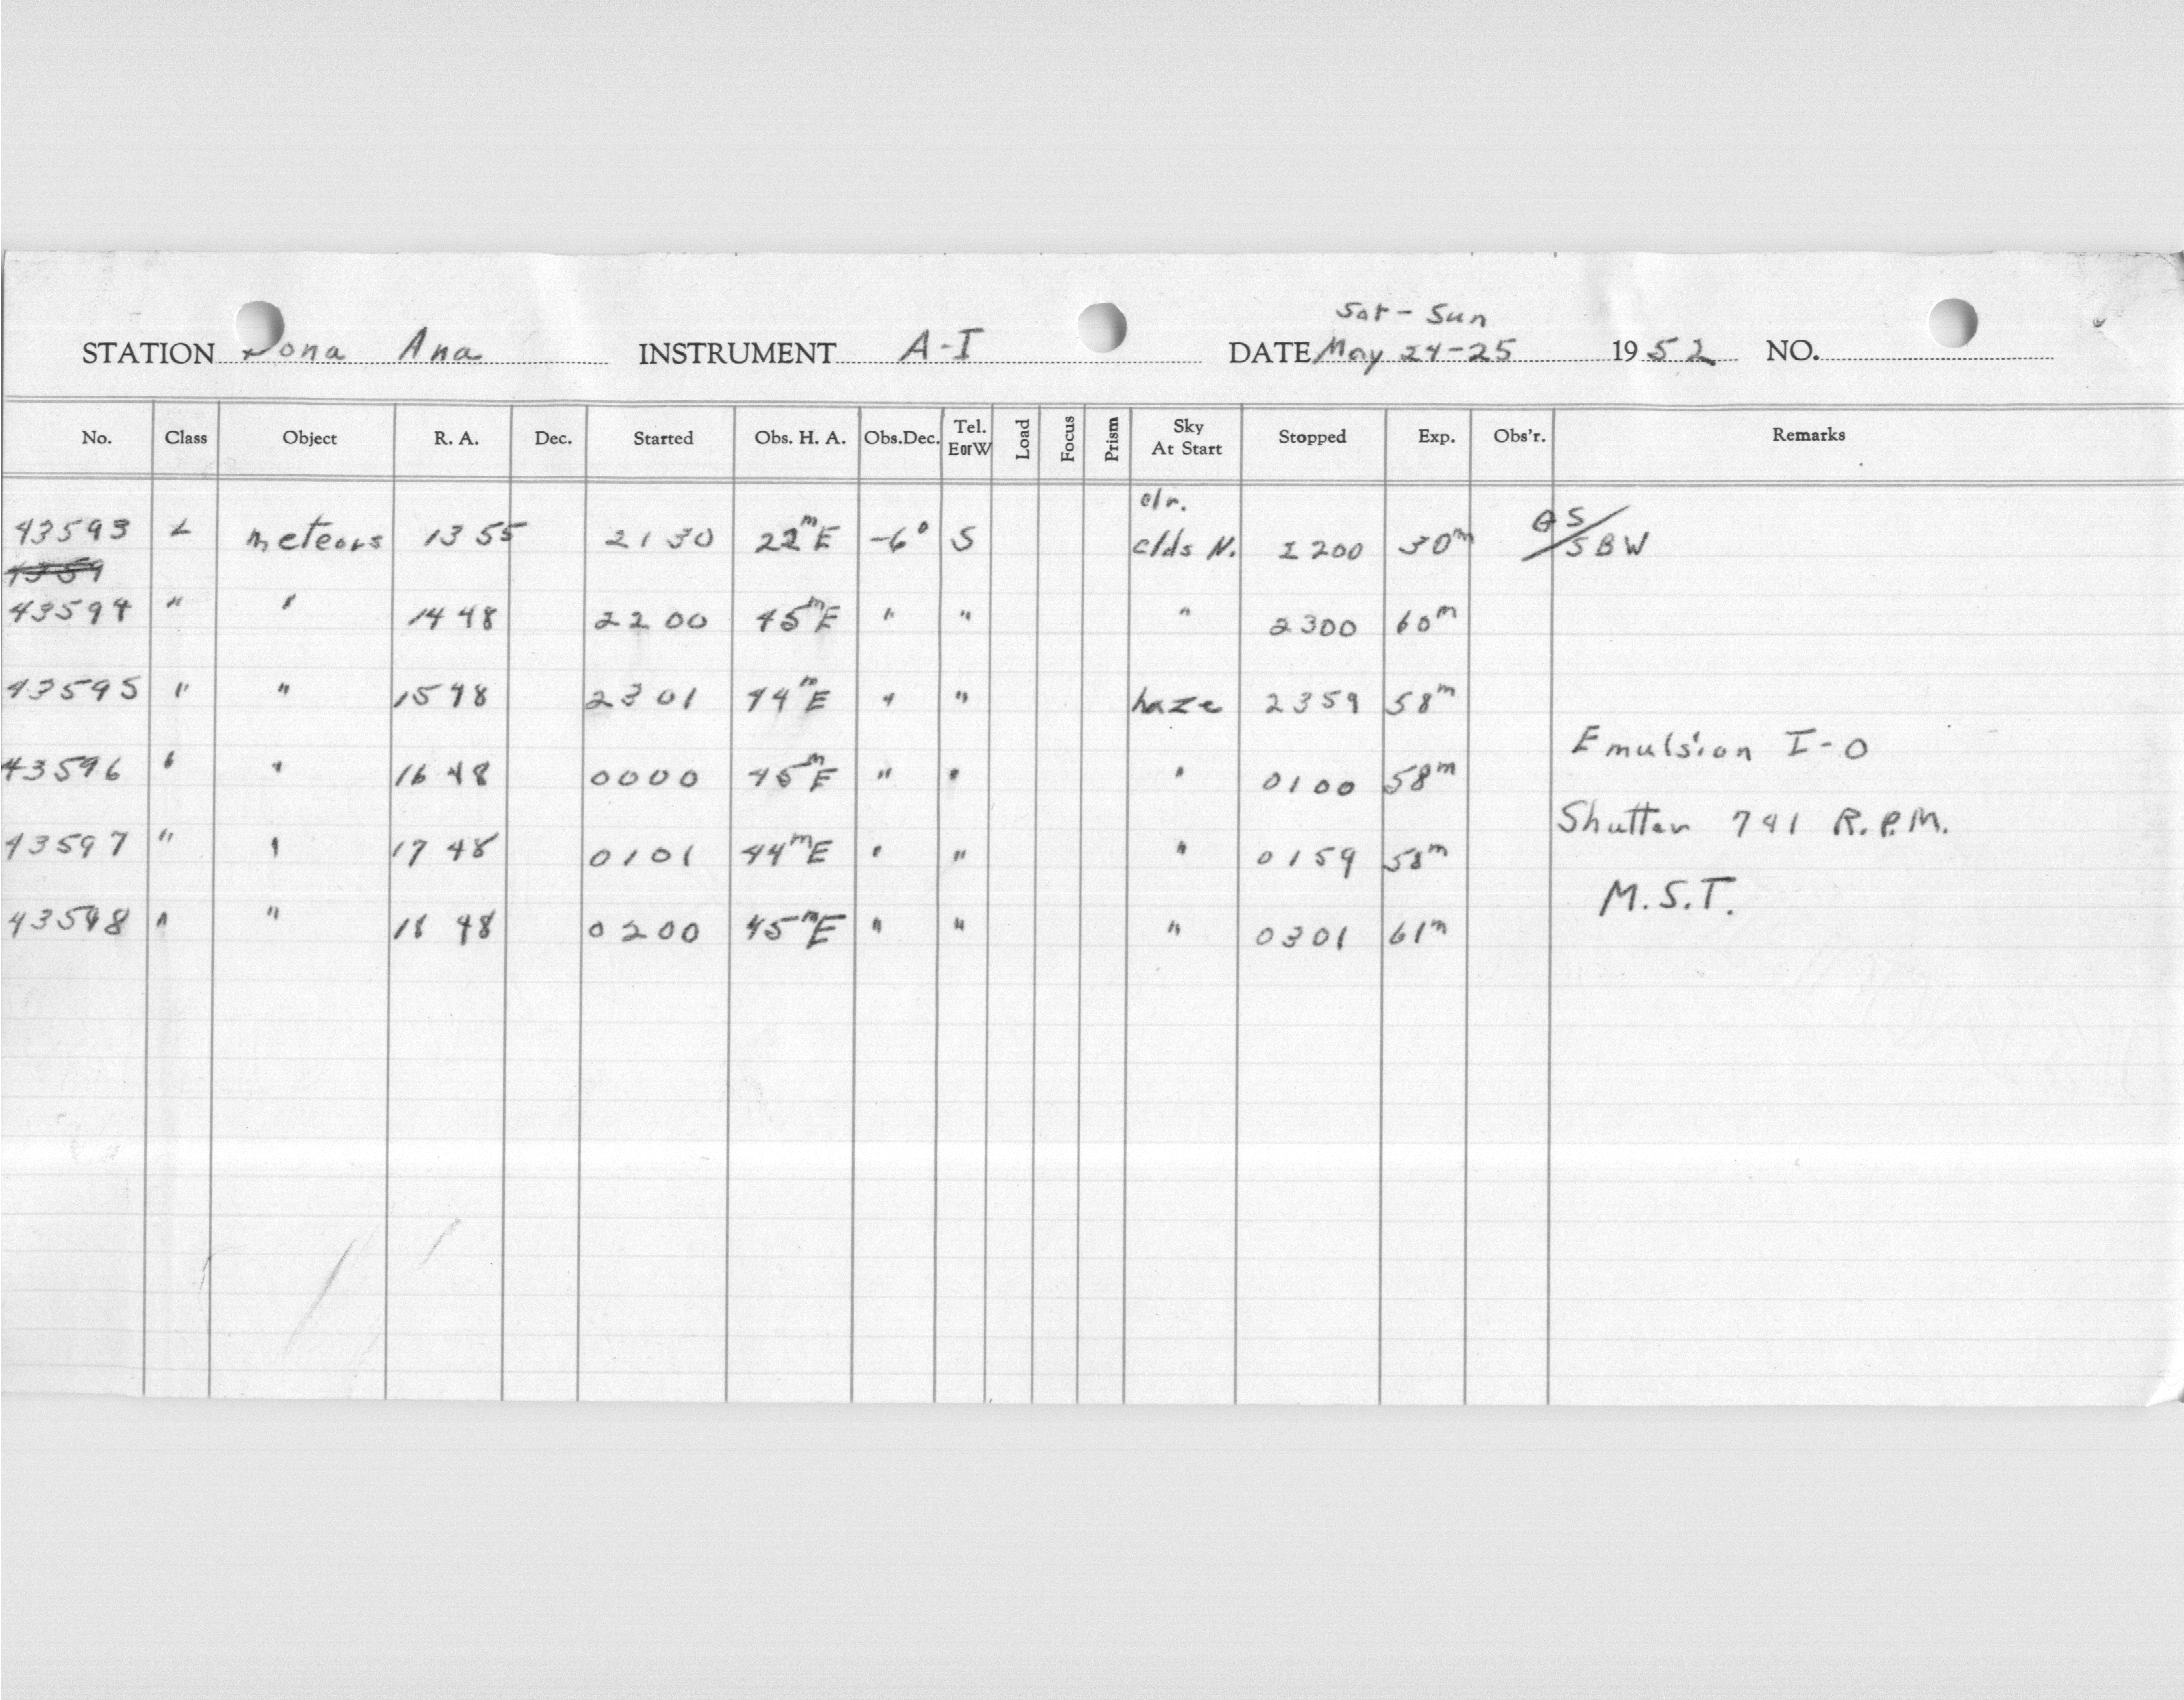 Sat - Sun
STATION Dona Ana INSTRUMENT A-I DATE May 24-25 1952 NO.
No. Class Object R. A. Dec. Started Obs. H. A. Obs.Dec. Tel. EorW Load Focus Prism Sky At Start Stopped Exp. Obs'r. Remarks
clr.
43593 L meteors 13 55 21 30 22ᵐE -6° S clds N. 2200 30ᵐ GS/SBW
4359
43594 " " 14 48 22 00 45ᵐE " " " 2300 60ᵐ
43595 " " 15 48 23 01 44ᵐE " " haze 2359 58ᵐ
Emulsion I-O
43596 " " 16 48 0000 45ᵐE " " " 0100 58ᵐ
Shutter 741 R.P.M.
43597 " " 17 48 0101 44ᵐE " " " 0159 58ᵐ
M.S.T.
43598 " " 18 48 0200 45ᵐE " " " 0301 61ᵐ